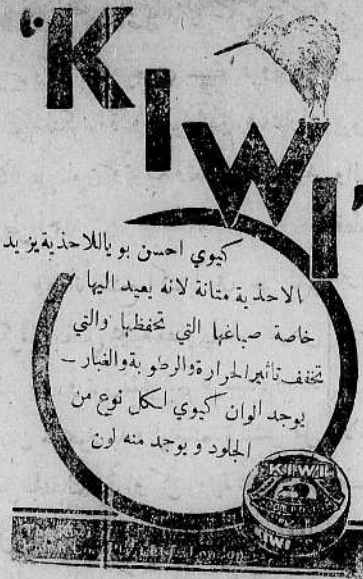 "KIWI"
كيوي احسن بوياللاحذية يزيد
الاحذية متانة لانه يعيد اليها
خاصة صباغها التي تحفظها والتي
تخفف تاثير الحرارة والرطوبة والغبار –
يوجد الوان كيوي لكل نوع من
الجلود ويوجد منه لون
KIWI
KIWI
London